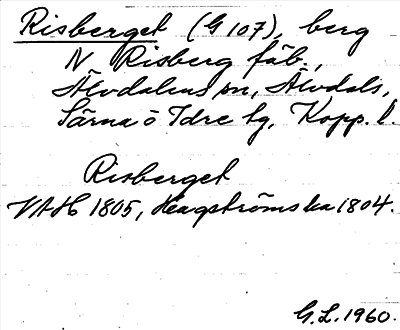 Risberget (G 107), berg
N Risberg fäb.,
Älvdalens sn, Älvdals,
Särna o Idre tg, Kopp. l.
Risberget
VAH 1805, Hagströms ka 1804.
G.L. 1960.